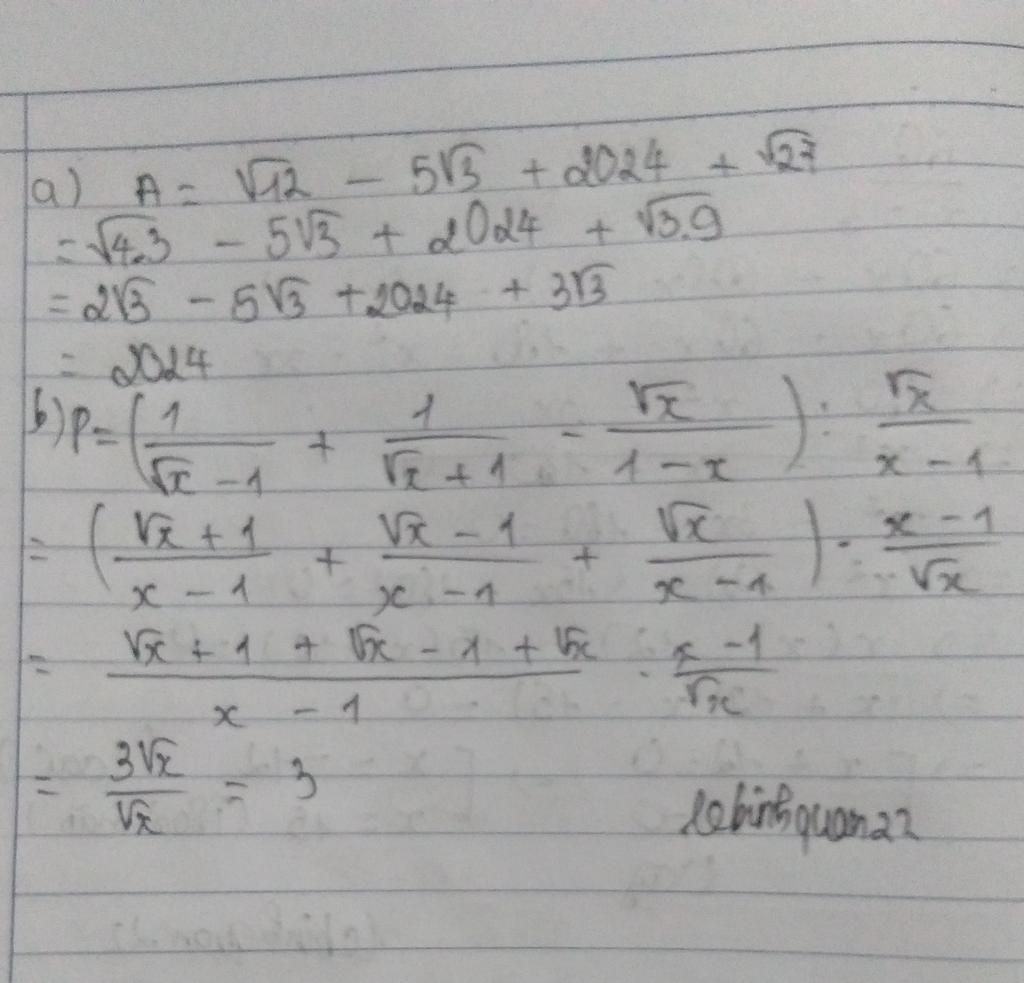 a) A = √12 - 5√3 + 2024 + √27
= √4.3 - 5√3 + 2024 + √3.9
= 2√3 - 5√3 + 2024 + 3√3
= 2024
b) P = (1/(√x - 1) + 1/(√x + 1) - √x/(1 - x)) : √x/(x - 1)
= ((√x + 1)/(x - 1) + (√x - 1)/(x - 1) + √x/(x - 1)) . (x - 1)/√x
= (√x + 1 + √x - 1 + √x)/(x - 1) . (x - 1)/√x
= 3√x/√x = 3
lebinhquan22